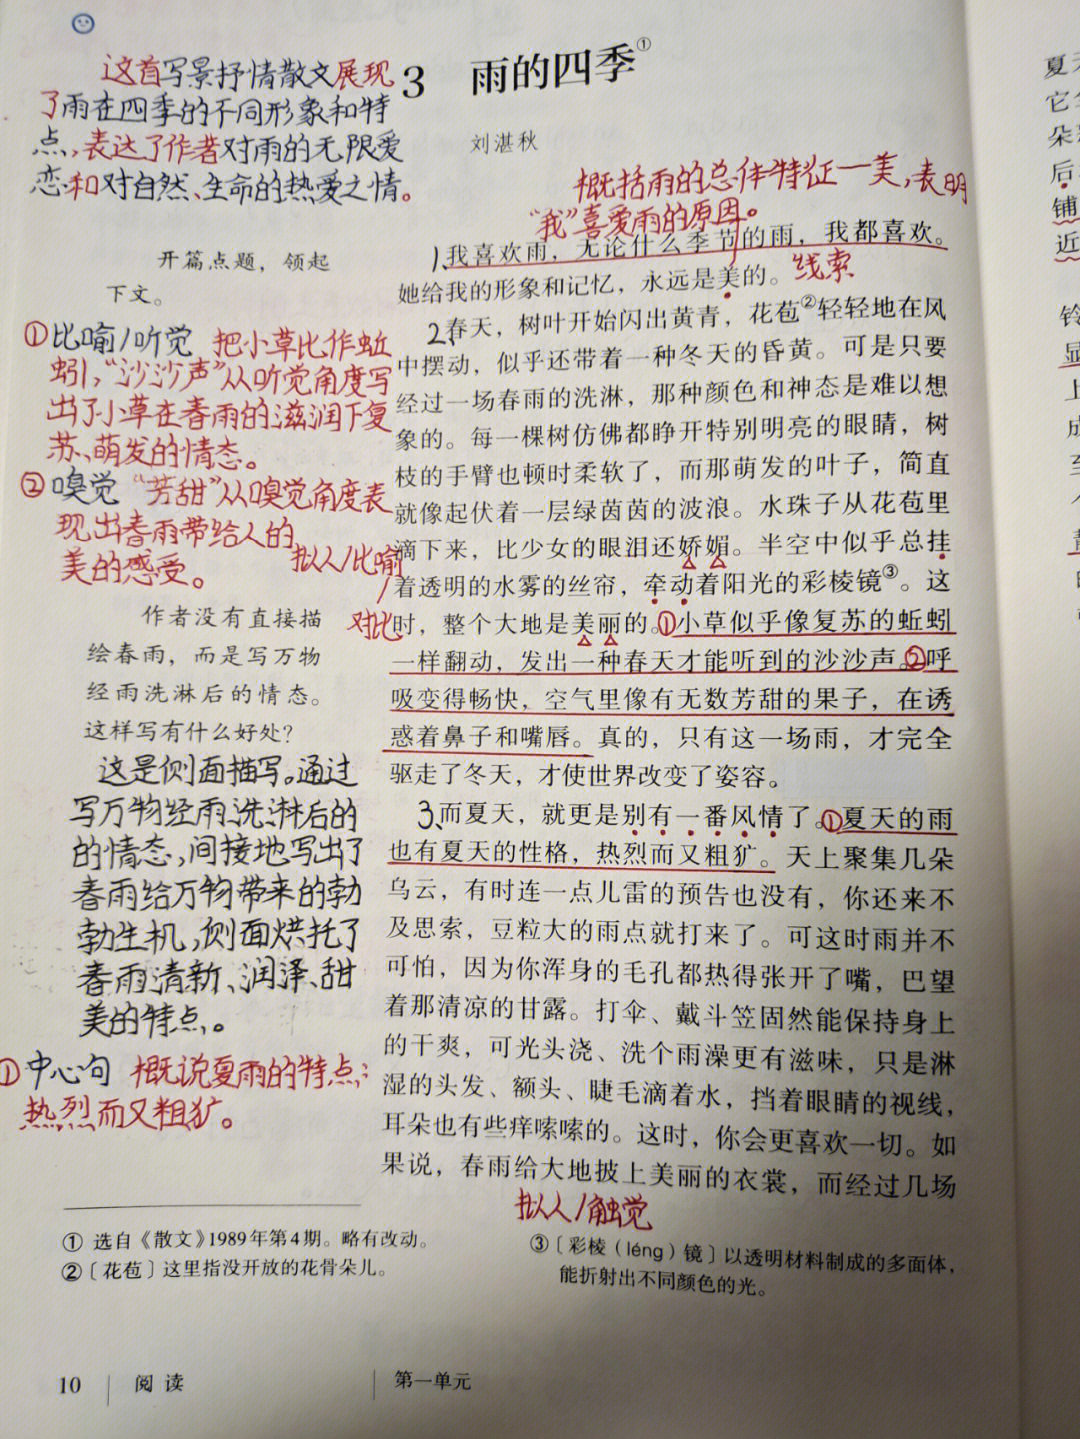 这首写景抒情散文展现
了雨在四季的不同形象和特
点,表达了作者对雨的无限爱
恋和对自然、生命的热爱之情。
3 雨的四季①
刘湛秋
概括雨的总体特征—美,表明
“我”喜爱雨的原因。
开篇点题，领起
下文。
1、我喜欢雨，无论什么季节的雨，我都喜欢。
她给我的形象和记忆，永远是美的。 线索
2、春天，树叶开始闪出黄青，花苞②轻轻地在风
中摆动，似乎还带着一种冬天的昏黄。可是只要
经过一场春雨的洗淋，那种颜色和神态是难以想
象的。每一棵树仿佛都睁开特别明亮的眼睛，树
枝的手臂也顿时柔软了，而那萌发的叶子，简直
就像起伏着一层绿茵茵的波浪。水珠子从花苞里
滴下来，比少女的眼泪还娇媚。半空中似乎总挂
着透明的水雾的丝帘，牵动着阳光的彩棱镜③。这
时，整个大地是美丽的。①小草似乎像复苏的蚯蚓
一样翻动，发出一种春天才能听到的沙沙声。②呼
吸变得畅快，空气里像有无数芳甜的果子，在诱
惑着鼻子和嘴唇。真的，只有这一场雨，才完全
驱走了冬天，才使世界改变了姿容。
①比喻/听觉 把小草比作蚯
蚓,“沙沙声”从听觉角度写
出了小草在春雨的滋润下复
苏、萌发的情态。
②嗅觉 “芳甜”从嗅觉角度表
现出春雨带给人的
美的感受。
拟人/比喻
对比
作者没有直接描
绘春雨，而是写万物
经雨洗淋后的情态。
这样写有什么好处？
这是侧面描写。通过
写万物经雨洗淋后的
的情态,间接地写出了
春雨给万物带来的勃
勃生机,侧面烘托了
春雨清新、润泽、甜
美的特点。
3、而夏天，就更是别有一番风情了。①夏天的雨
也有夏天的性格，热烈而又粗犷。天上聚集几朵
乌云，有时连一点儿雷的预告也没有，你还来不
及思索，豆粒大的雨点就打来了。可这时雨并不
可怕，因为你浑身的毛孔都热得张开了嘴，巴望
着那清凉的甘露。打伞、戴斗笠固然能保持身上
的干爽，可光头浇、洗个雨澡更有滋味，只是淋
湿的头发、额头、睫毛滴着水，挡着眼睛的视线，
耳朵也有些痒嗦嗦的。这时，你会更喜欢一切。如
果说，春雨给大地披上美丽的衣裳，而经过几场
①中心句 概说夏雨的特点:
热烈而又粗犷。
拟人/触觉
① 选自《散文》1989年第4期。略有改动。
②〔花苞〕这里指没开放的花骨朵儿。
③〔彩棱（léng）镜〕以透明材料制成的多面体，
能折射出不同颜色的光。
10 阅读 第一单元
夏天
它
朵
后
铺
近
铃
显
上
成
至